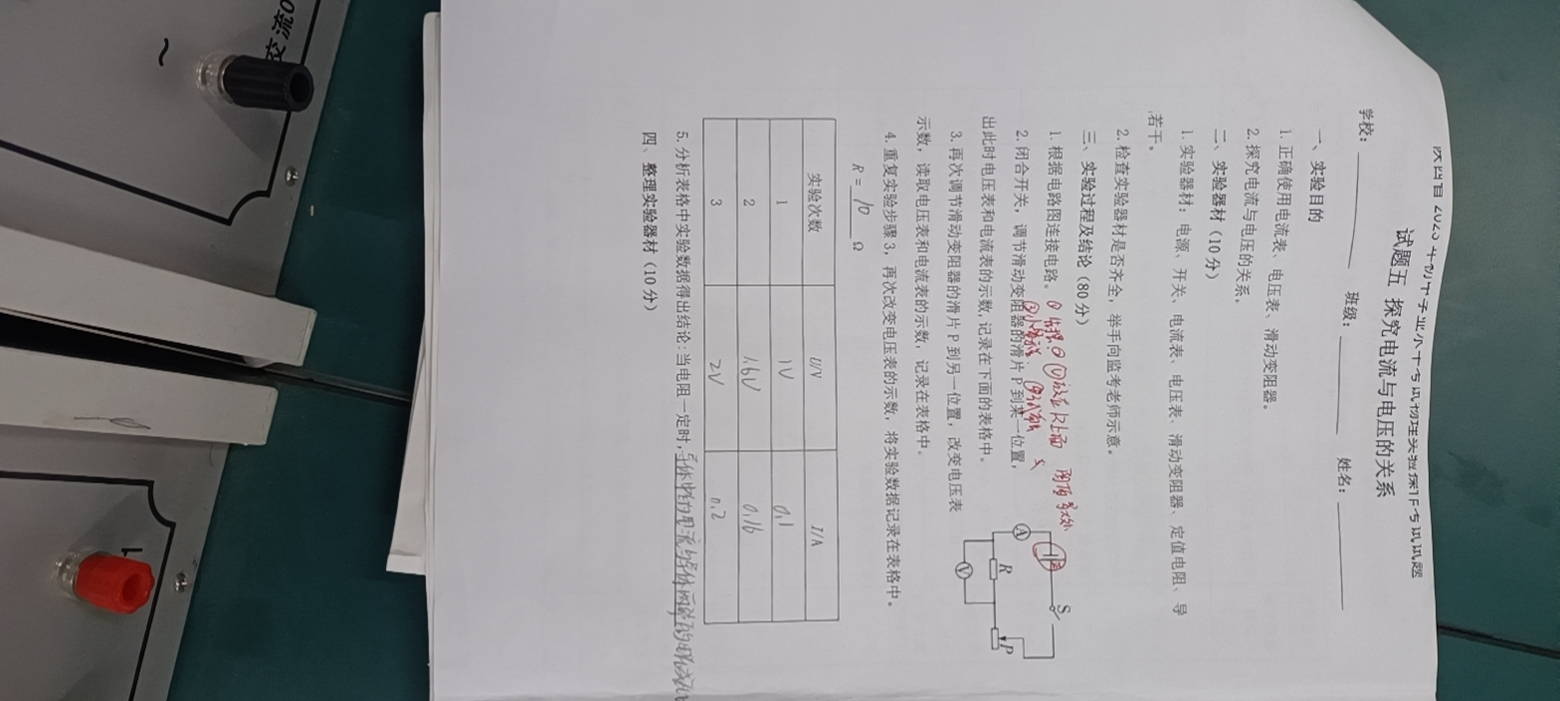 试题五 探究电流与电压的关系
学校： 班级： 姓名：
一、实验目的
1. 正确使用电流表、电压表、滑动变阻器。
2. 探究电流与电压的关系。
二、实验器材（10 分）
1. 实验器材：电源、开关、电流表、电压表、滑动变阻器、定值电阻、导
若干。
2. 检查实验器材是否齐全，举手向监考老师示意。
三、实验过程及结论（80 分）
1. 根据电路图连接电路。
2. 闭合开关，调节滑动变阻器的滑片 P 到某一位置，
出此时电压表和电流表的示数，记录在下面的表格中。
3. 再次调节滑动变阻器的滑片 P 到另一位置，改变电压表
示数，读取电压表和电流表的示数，记录在表格中。
4. 重复实验步骤 3，再次改变电压表的示数，将实验数据记录在表格中。
S
P
R
A
V
R = 10 Ω
实验次数 U/V I/A
1 1V 0.1
2 1.6V 0.16
3 2V 0.2
5. 分析表格中实验数据得出结论：当电阻一定时，导体中的电流与导体两端的电压成
四、整理实验器材（10 分）
交流
~